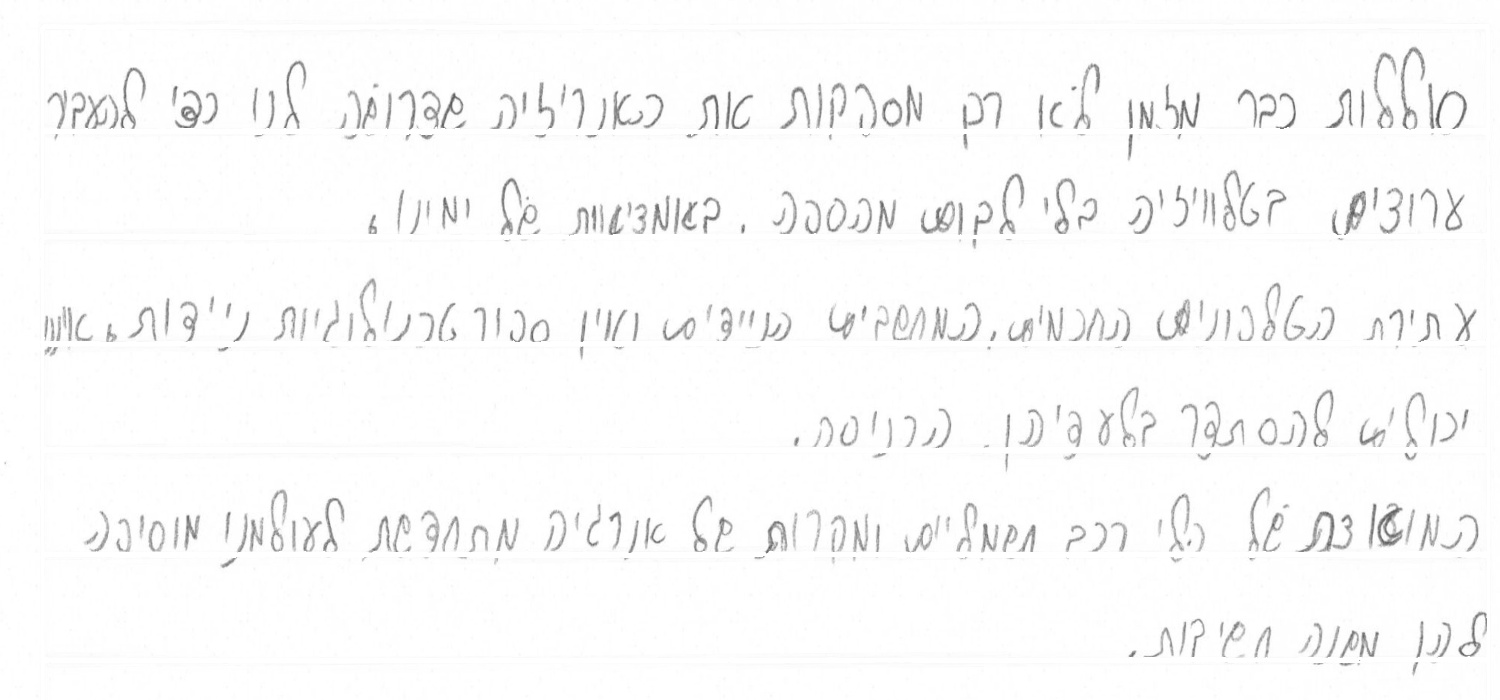 סוללות כבר מזמן לא רק מספקות את האנרגיה שדרושה לנו כדי להעביר
ערוצים בטלוויזיה בלי לקום מהספה. במציאות של ימינו,
עתירת הטלפונים החכמים, המחשבים הניידים ואין ספור טכנולוגיות ניידות, איננו
יכולים להסתדר בלעדיהן. הכניסה.
המואצת של כלי רכב חשמליים ומקורות של אנרגיה מתחדשת לעולמנו מוסיפה
להן משנה חשיבות.